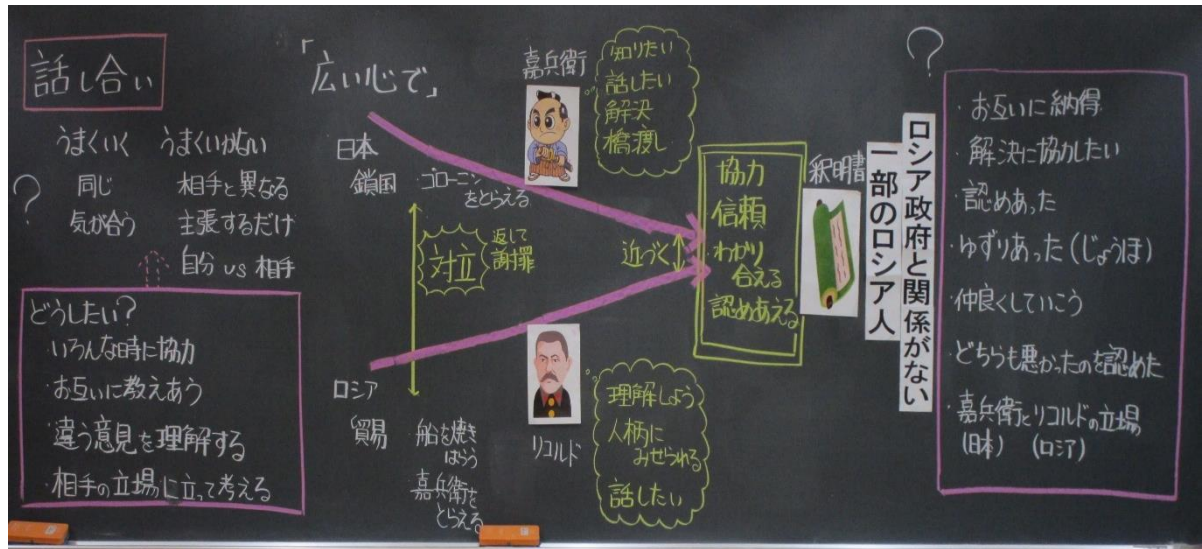 話し合い
うまくいく
同じ
気が合う
うまくいかない
相手と異なる
主張するだけ
自分 vs 相手
?
どうしたい?
・いろんな時に協力
・お互いに教えあう
・違う意見を理解する
・相手の立場に立って考える
「広い心で」
日本
鎖国
・ゴローニン
をとらえる
対立
返して
謝罪
ロシア
貿易
船を焼き
はらう
嘉兵衛を
とらえる
嘉兵衛
知りたい
話したい
解決
橋渡し
近づく
リコルド
理解しよう
人柄に
みせられる
話したい
協力
信頼
・わかり
合える
認めあえる
釈明書
ロシア政府と関係がない
一部のロシア人
?
・お互いに納得
・解決に協力したい
・認めあった
・ゆずりあった(じょうほ)
・仲良くしていこう
・どちらも悪かったのを認めた
・嘉兵衛とリコルドの立場
(日本) (ロシア)